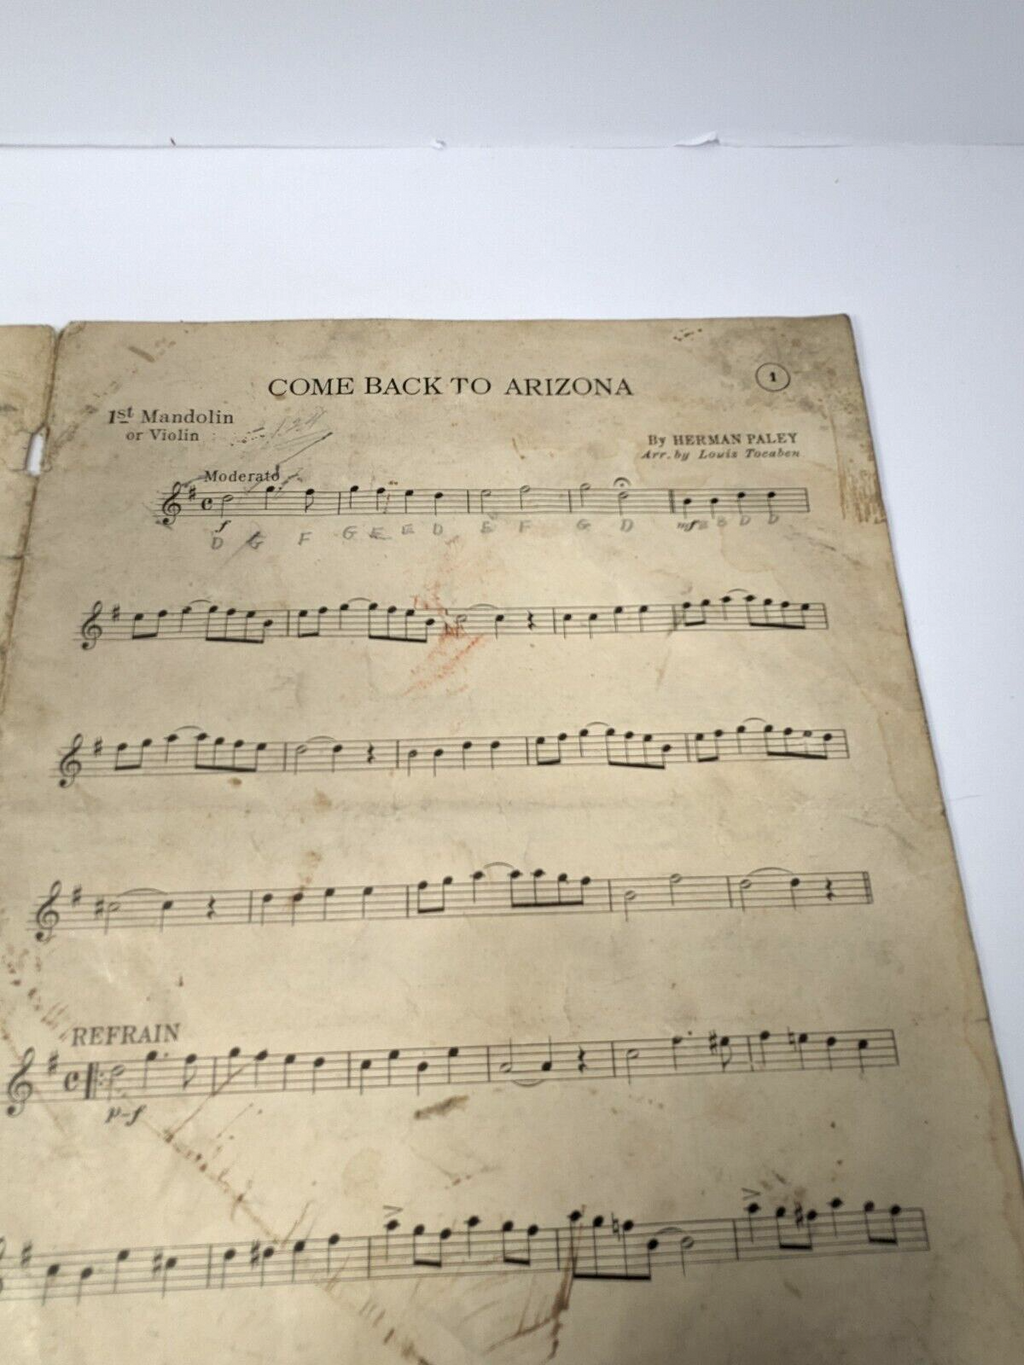 COME BACK TO ARIZONA
1
1st Mandolin
or Violin
By HERMAN PALEY
Arr. by Louis Tocaben
Moderato
f
mf
D G F G E E D E F G D B B D D
REFRAIN
p-f